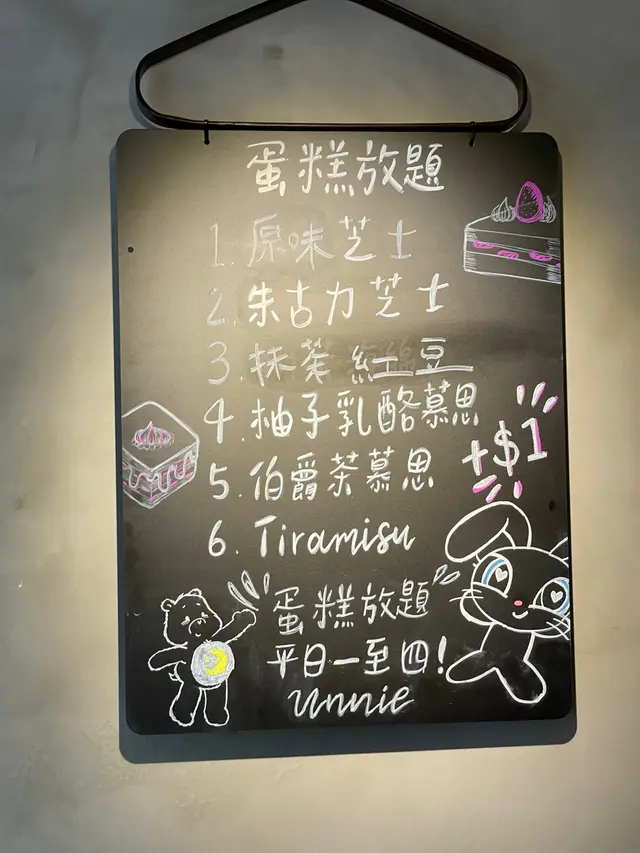 蛋糕放題
1. 原味芝士
2. 朱古力芝士
3. 抹茶紅豆
4. 柚子乳酪慕思
5. 伯爵茶慕思
+$1
6. Tiramisu
蛋糕放題
平日一至四!
unnie